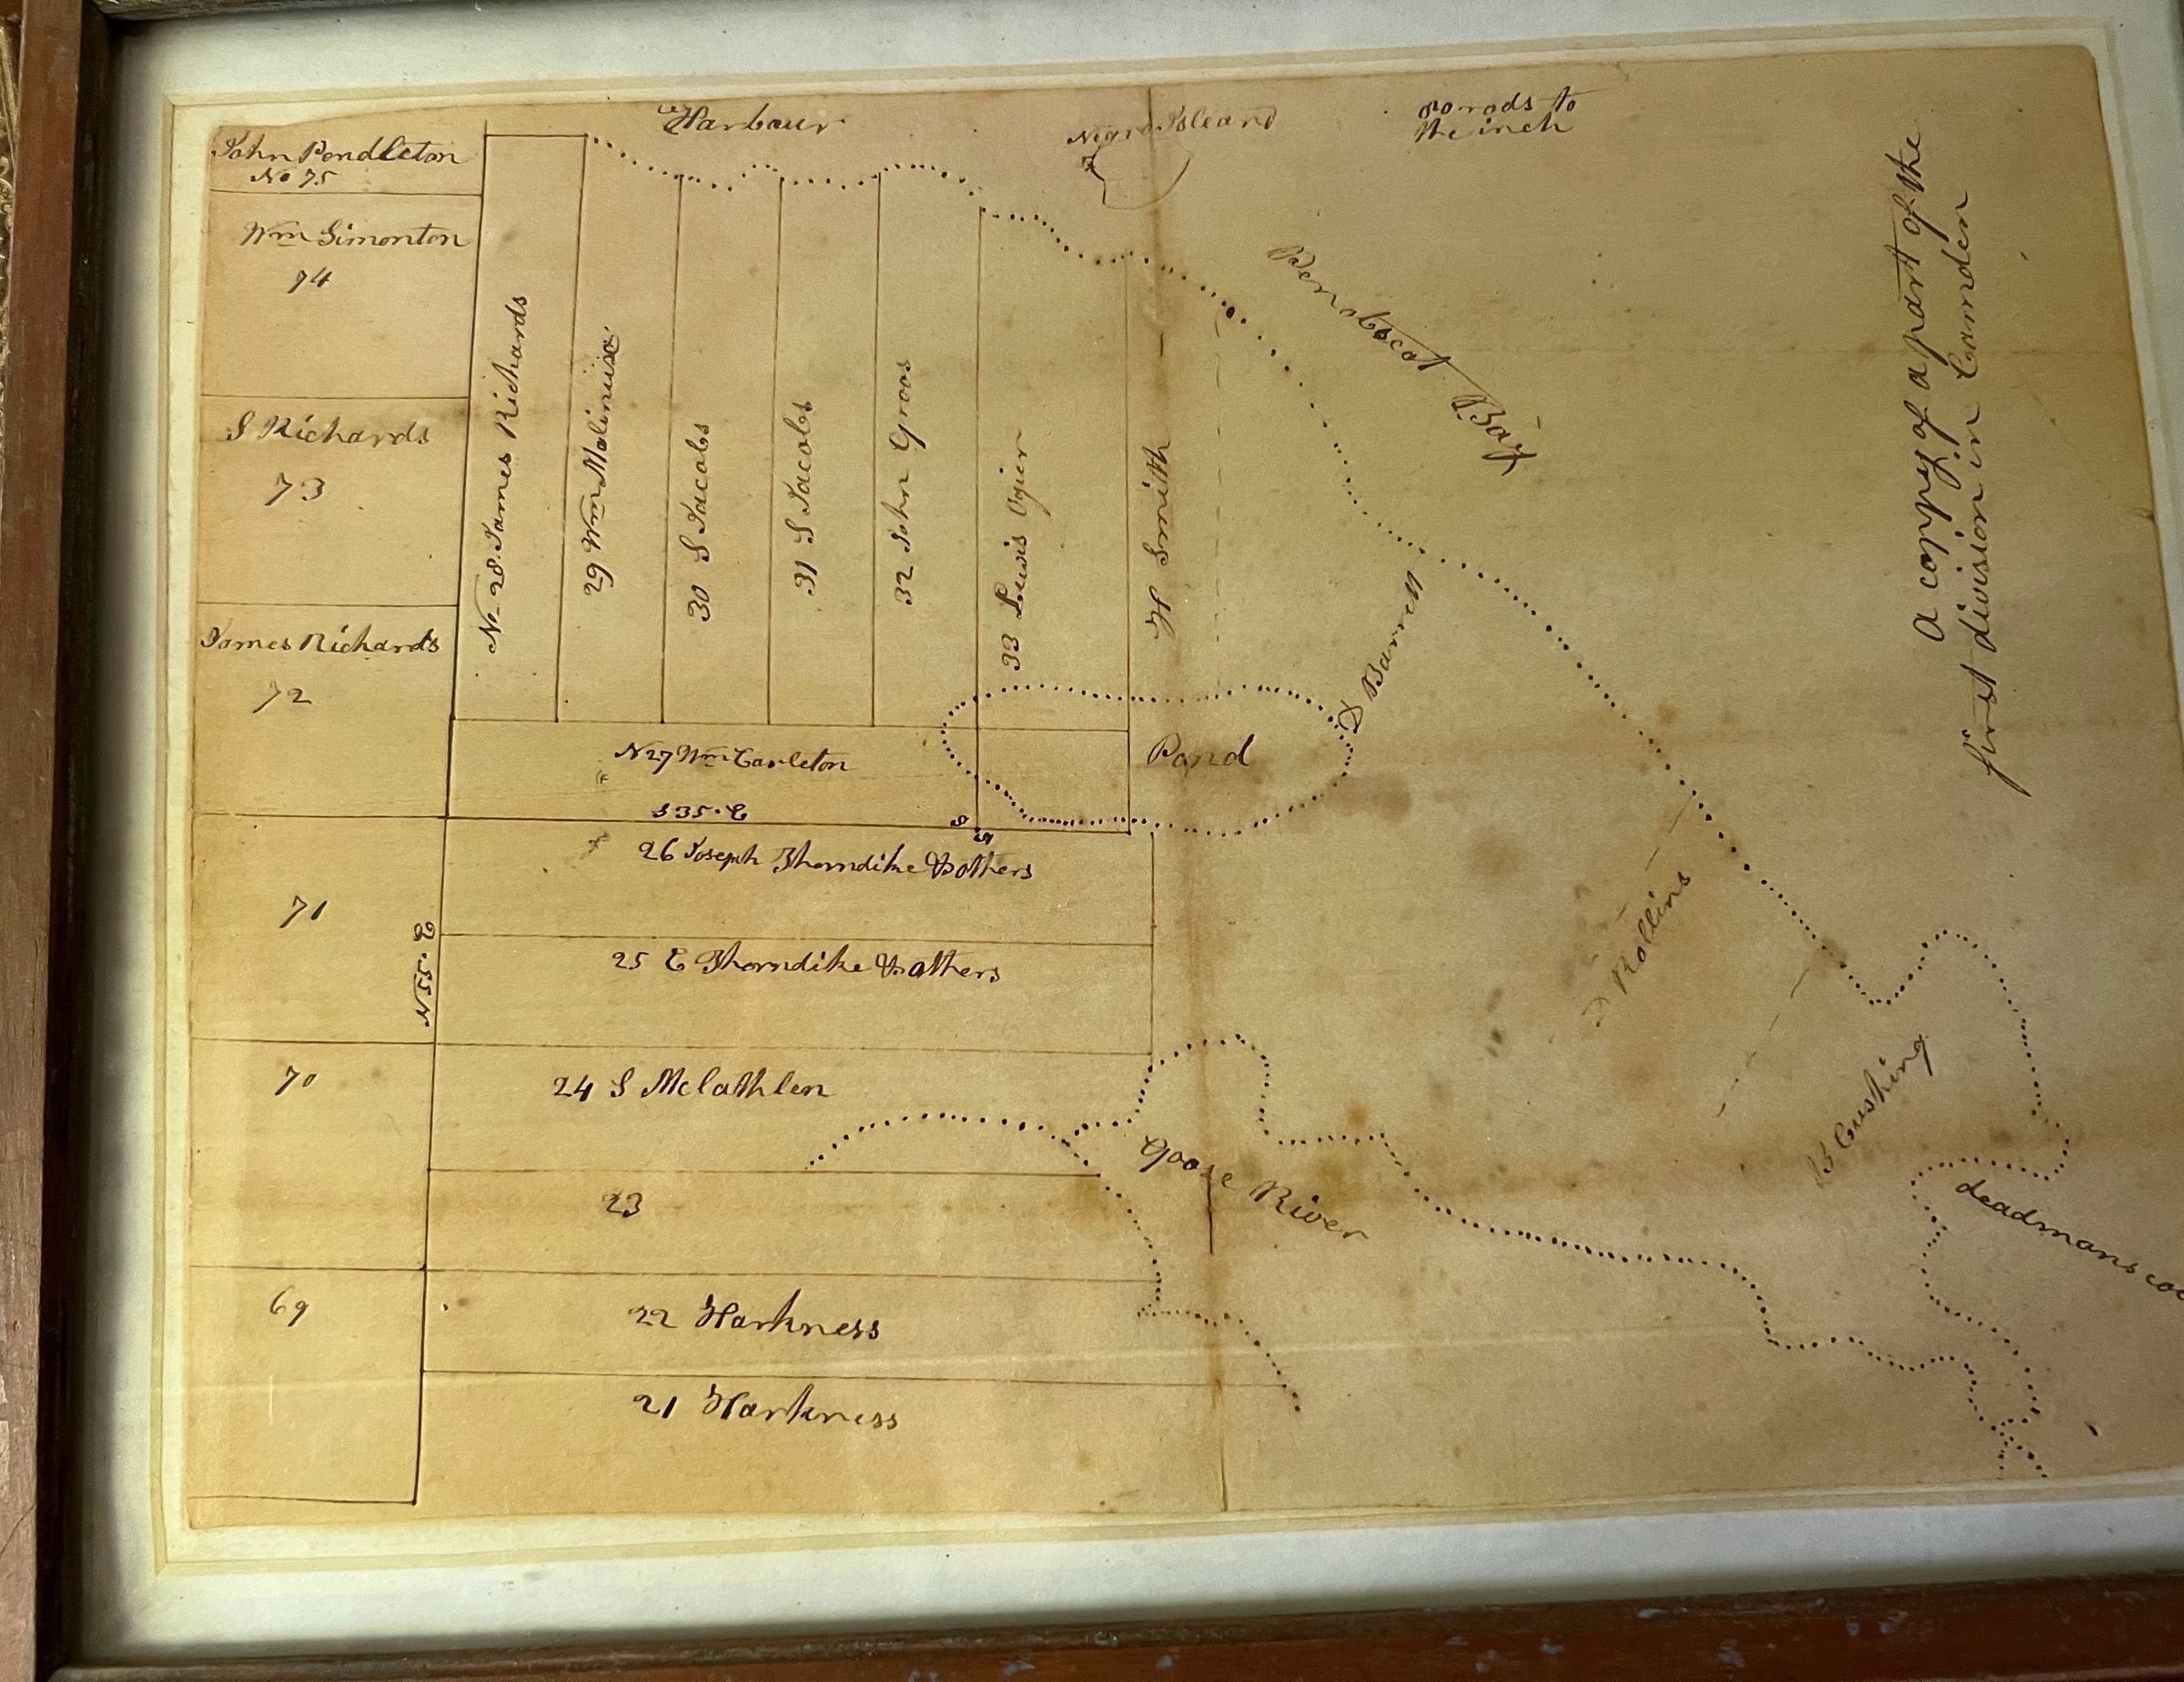 Harbour
Negro Island
rods to
the inch
John Pendleton
No 75
Wm Simonton
74
S Richards
73
James Richards
72
71
70
69
No 28 James Richards
29 Wm
30 S Jacobs
31 S Jacobs
32 John Groos
33 Lewis Ogier
H Smith
Penobscot Bay
D Barrett
Pond
N 27 Wm Carleton
S 35 • E
26 Joseph Thorndike & others
N 55 • E
25 E Thorndike & others
24 S Mclathlen
23
22 Harkness
21 Harkness
Goose River
D Rollins
B Cushing
deadmans
a coppy of a part of the
first division in Camden